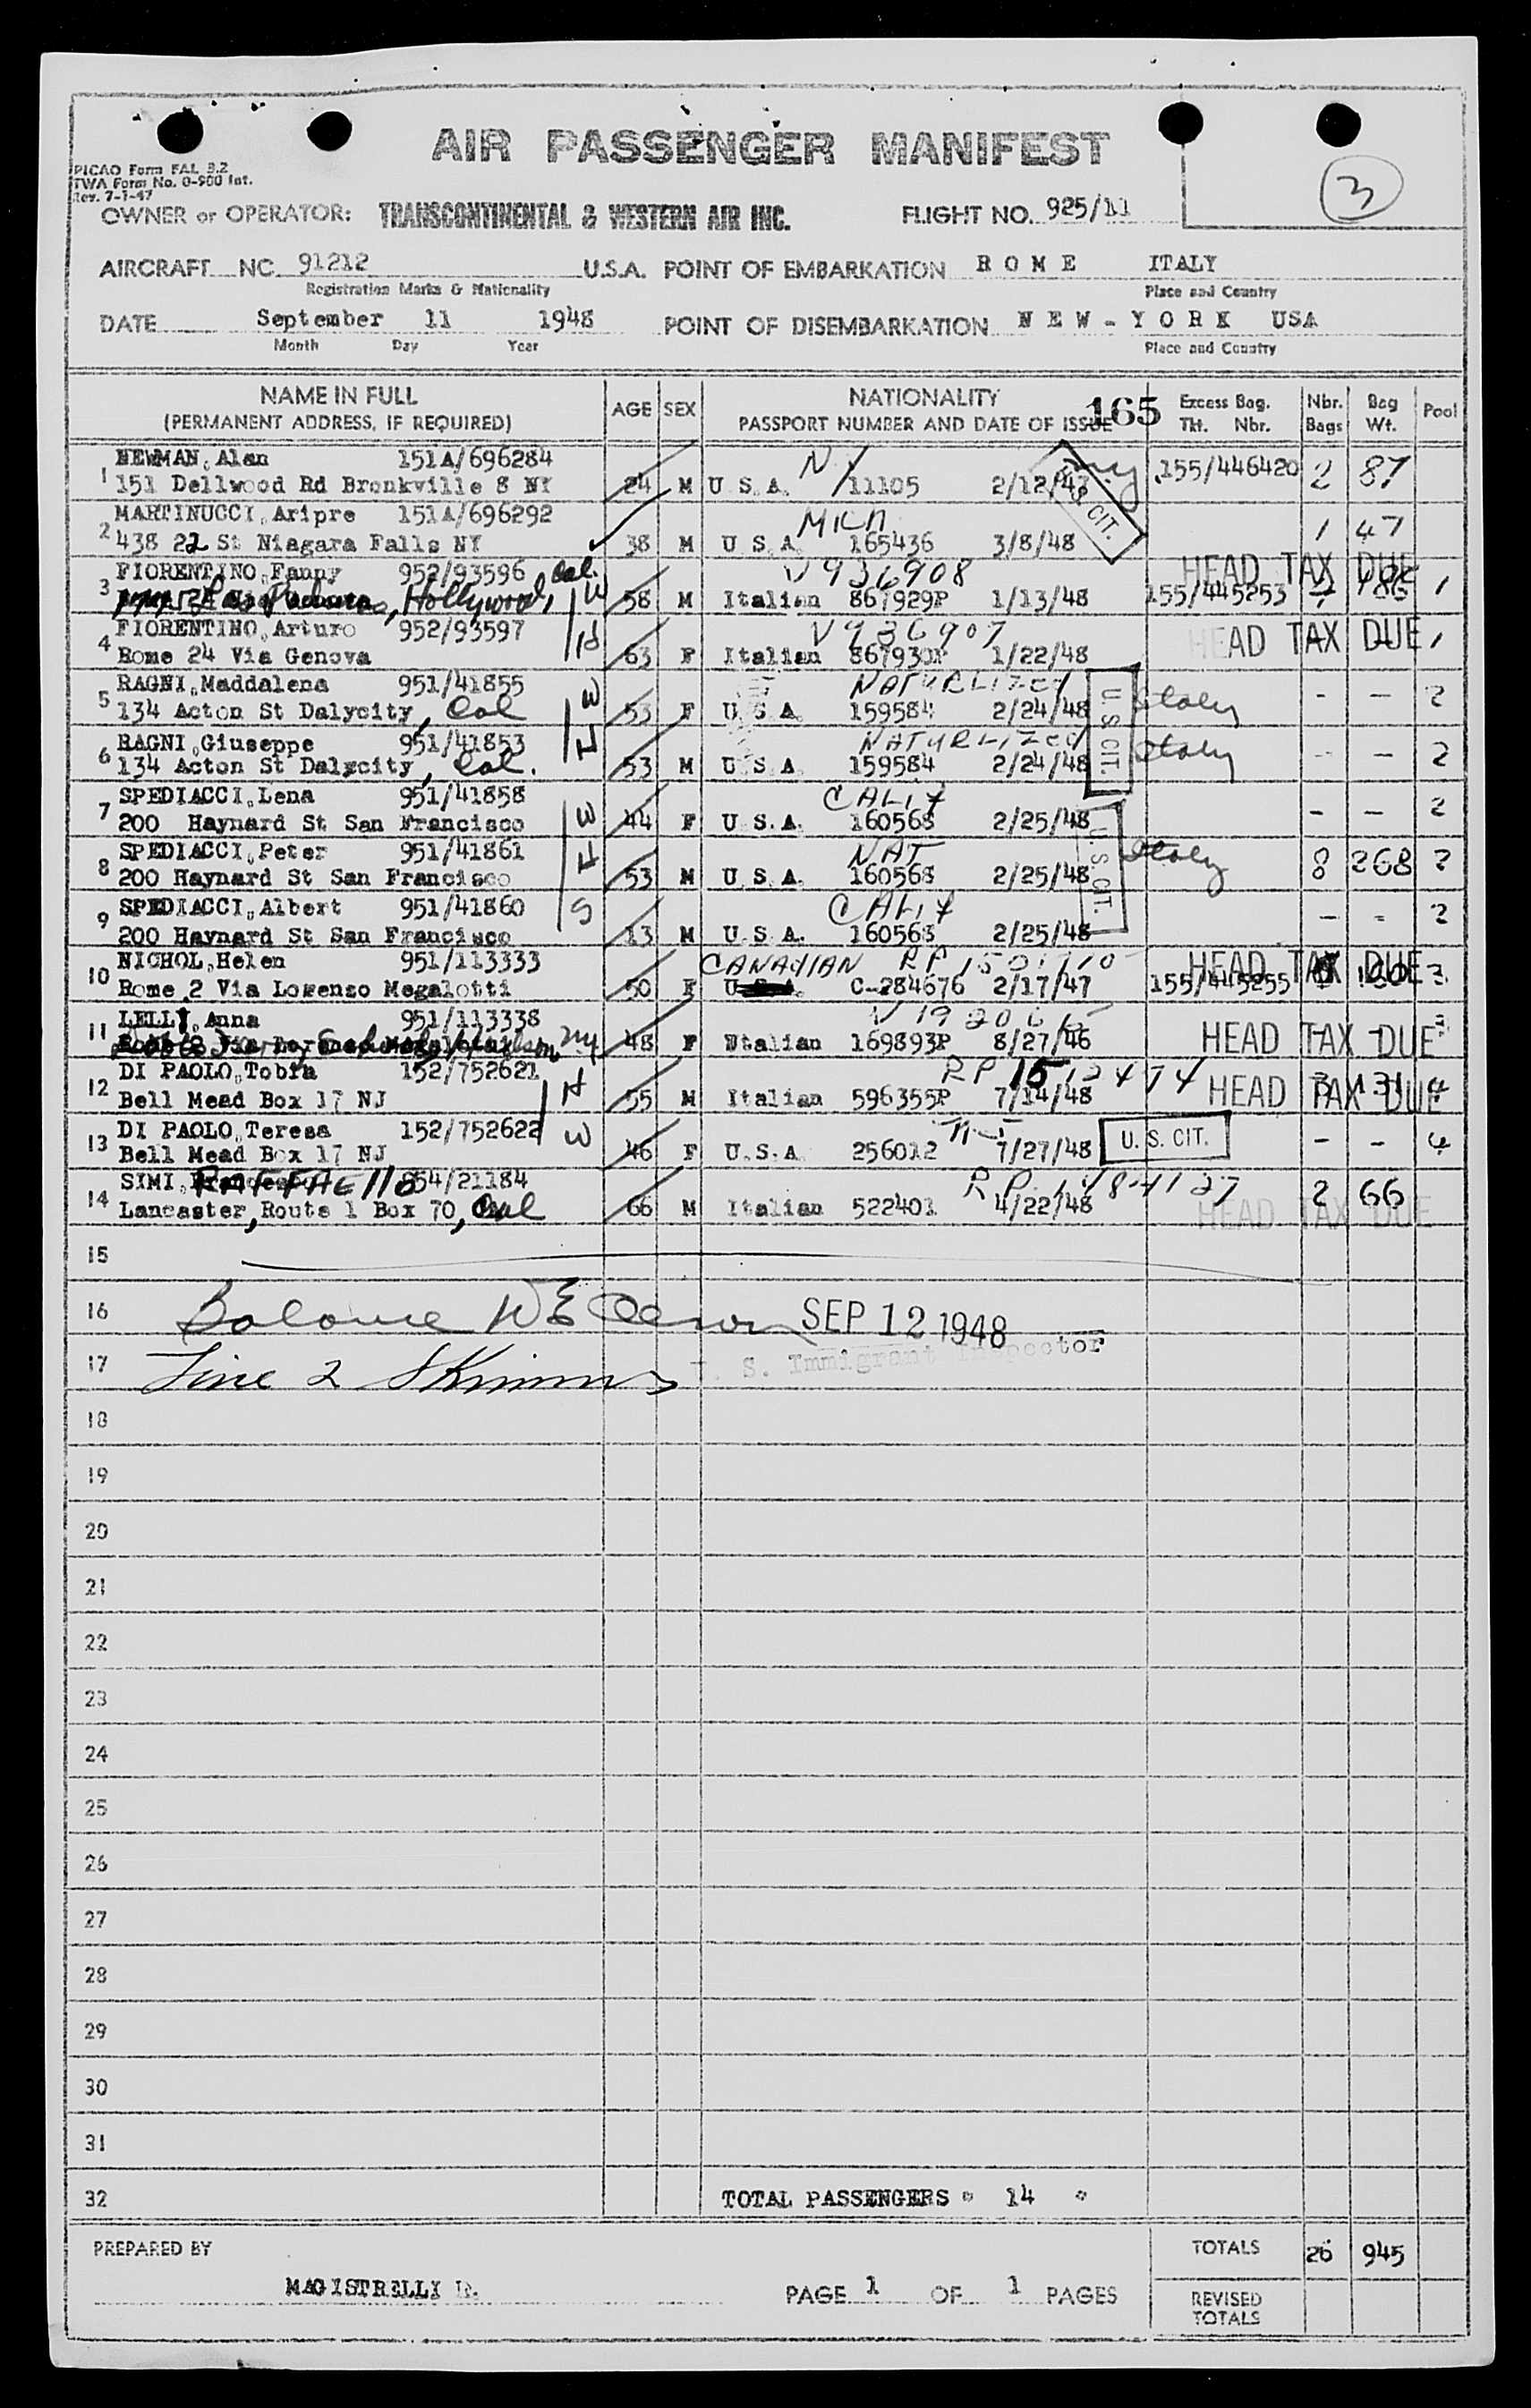 AIR PASSENGER MANIFEST
PICAO Form FAL 3.2
TWA Form No. 0-900 Int.
Rev. 7-1-47
3
OWNER or OPERATOR: TRANSCONTINENTAL & WESTERN AIR INC. FLIGHT NO. 925/11
AIRCRAFT NC 91212 U.S.A. POINT OF EMBARKATION ROME ITALY
Registration Marks & Nationality Place and Country
DATE September 11 1948 POINT OF DISEMBARKATION NEW-YORK USA
Month Day Year Place and Country
NAME IN FULL AGE SEX NATIONALITY 165 Excess Bag. Nbr. Bag Pool
(PERMANENT ADDRESS, IF REQUIRED) PASSPORT NUMBER AND DATE OF ISSUE Tkt. Nbr. Bags Wt.
NEWMAN, Alan 151A/696284 NY 155/446420 2 87
1 151 Dellwood Rd Bronkville 8 NY 24 M U S.A. 11105 2/12/47 U.S. CIT.
MARTINUCCI, Aripre 151A/696292 1 47
2 438 22 St Niagara Falls NY 38 M U S A. 165436 3/8/48
FIORENTINO, Fanny 952/93596 Cal. V936908 HEAD TAX DUE
3 Hollywood, W 58 M Italian 867929P 1/13/48 155/445253 7 186 1
FIORENTINO, Arturo 952/93597 V936907 HEAD TAX DUE 1
4 Rome 24 Via Genova H 63 F Italian 867930P 1/22/48
RAGNI, Maddalena 951/41855 W NATURLIZED Italy - - 2
5 134 Acton St Dalycity, Cal 53 F U S A. 159584 2/24/48 U.S CIT.
RAGNI, Giuseppe 951/41853 H NATURLIZED Italy - - 2
6 134 Acton St Dalycity, Cal. 53 M U S A 159584 2/24/48
SPEDIACCI, Lena 951/41858 W CALIF - - 2
7 200 Haynard St San Francisco 44 F U S.A. 160568 2/25/48
SPEDIACCI, Peter 951/41861 H NAT Italy 8 268 2
8 200 Haynard St San Francisco 53 M U S.A. 160568 2/25/48 U.S CIT.
SPEDIACCI, Albert 951/41860 S CALIF - - 2
9 200 Haynard St San Francisco 13 M U.S.A. 160568 2/25/48
NICHOL, Helen 951/113333 CANADIAN RP HEAD TAX DUE
10 Rome 2 Via Lorenzo Megalotti 50 F U.S.A. C-284676 2/17/47 155/445255 3
LELLI, Anna 951/113338 HEAD TAX DUE
11 NY 48 F Italian 169893P 8/27/46
DI PAOLO, Tobia 152/752621 H RP 1512474 HEAD TAX DUE
12 Bell Mead Box 17 NJ 55 M Italian 596355P 7/14/48 3 131 4
DI PAOLO, Teresa 152/752622 W NJ U.S. CIT. - - 4
13 Bell Mead Box 17 NJ 46 F U.S.A 256012 7/27/48
SIMI, RAFFAELLO 954/21184 RP 1484127 2 66
14 Lancaster, Route 1 Box 70, Cal 66 M Italian 522401 4/22/48 HEAD TAX DUE
15
16 Balance SEP 12 1948
17 Line 2 U. S. Immigrant Inspector
18
19
20
21
22
23
24
25
26
27
28
29
30
31
32 TOTAL PASSENGERS " 14 "
PREPARED BY TOTALS 26 945
MAGISTRELLI PAGE 1 OF 1 PAGES REVISED
TOTALS